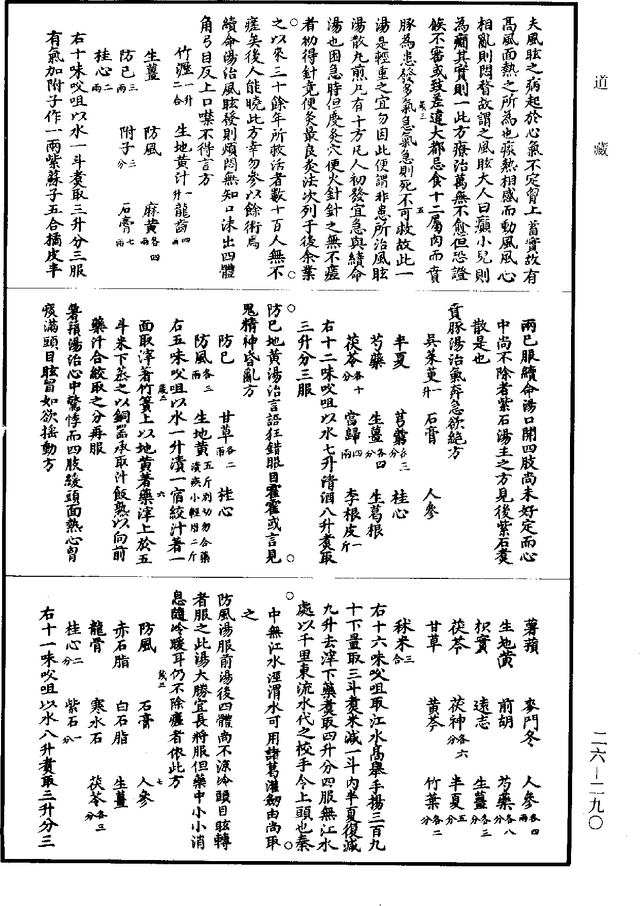 道藏
夫風眩之病起於心氣不定胷上蓄實故有
高風面熱之所為也痰熱相感而動風風心
相亂則悶瞀故謂之風眩大人曰癲小兒則
為癇其實則一此方療治萬無不愈但恐證
候不審或致差違大都忌食十二屬肉而奔
豚為患發多氣急氣急則死不可救故此一
湯是輕重之宜勿因此便謂非患所治風眩
湯散丸煎凡有十方凡人初發宜急與續命
湯也困急時但度灸穴便火針針之無不瘥
者初得針竟便灸最良灸法次列于後余業
之以來三十餘年所救活者數十百人無不
瘥矣後人能曉此方幸勿參以餘術焉
續命湯治風眩發則煩悶無知口沫出四體
角弓目反上口噤不得言方
竹瀝一升二合 生地黃汁一升 龍齒四兩
生薑 防風 麻黃各四兩
防己三兩 附子三分 石膏七兩
桂心二兩
右十味㕮咀以水一斗煑取三升分三服
有氣加附子作一兩紫蘇子五合橘皮半
兩已服續命湯口開四肢尚未好定而心
中尚不除者紫石湯主之方見後紫石煑
散是也
賁豚湯治氣奔急欲絕方
吳茱萸一升 石膏 人參
半夏 芎藭各三分 桂心
芍藥 生薑各四分 生葛根
茯苓各十分 當歸四兩 李根皮一斤
右十二味㕮咀以水七升清酒八升煑取
三升分三服
防己地黃湯治言語狂錯眼目霍霍或言見
鬼精神昏亂方
防己 甘草各二兩 桂心
防風各三兩 生地黃五斤別切勿合藥漬疾小輕用二斤
右五味㕮咀以水一升漬一宿絞汁著一
面取滓著竹簀上以地黃著藥滓上於五
斗米下蒸之以銅器承取汁飯熟以向前
藥汁合絞取之分再服
薯蕷湯治心中驚悸而四肢緩頭面熱心胷
痰滿頭目眩冒如欲搖動方
薯蕷 麥門冬 人參各四兩
生地黃 前胡 芍藥各八分
枳實 遠志 生薑各三分
茯苓 茯神各六分 半夏五分
甘草 黃芩 竹葉各二分
秫米三合
右十六味㕮咀取江水高舉手揚三百九
十下量取三斗煑米減一斗內半夏復減
九升去滓下藥煑取四升分四服無江水
處以千里東流水代之校手令上頭也秦
中無江水涇渭水可用諸葛灌劒由尚取
之
防風湯服前湯後四體尚不涼冷頭目眩轉
者服之此湯大勝宜長將服但藥中小小消
息隨冷暖耳仍不除瘥者依此方
防風 石膏 人參
赤石脂 白石脂 生薑
龍骨 寒水石 茯苓各三分
桂心二分 紫石一分
右十一味㕮咀以水八升煑取三升分三
二六—二九〇